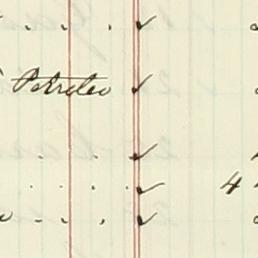 . . . ✓
Petroleo ✓
. . ✓
. . . ✓ 4
. . . ✓